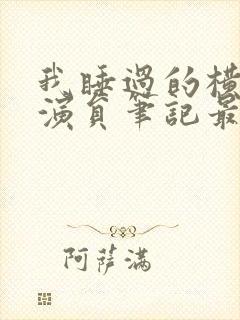 我睡過的橫
演員筆記最
阿薩滿